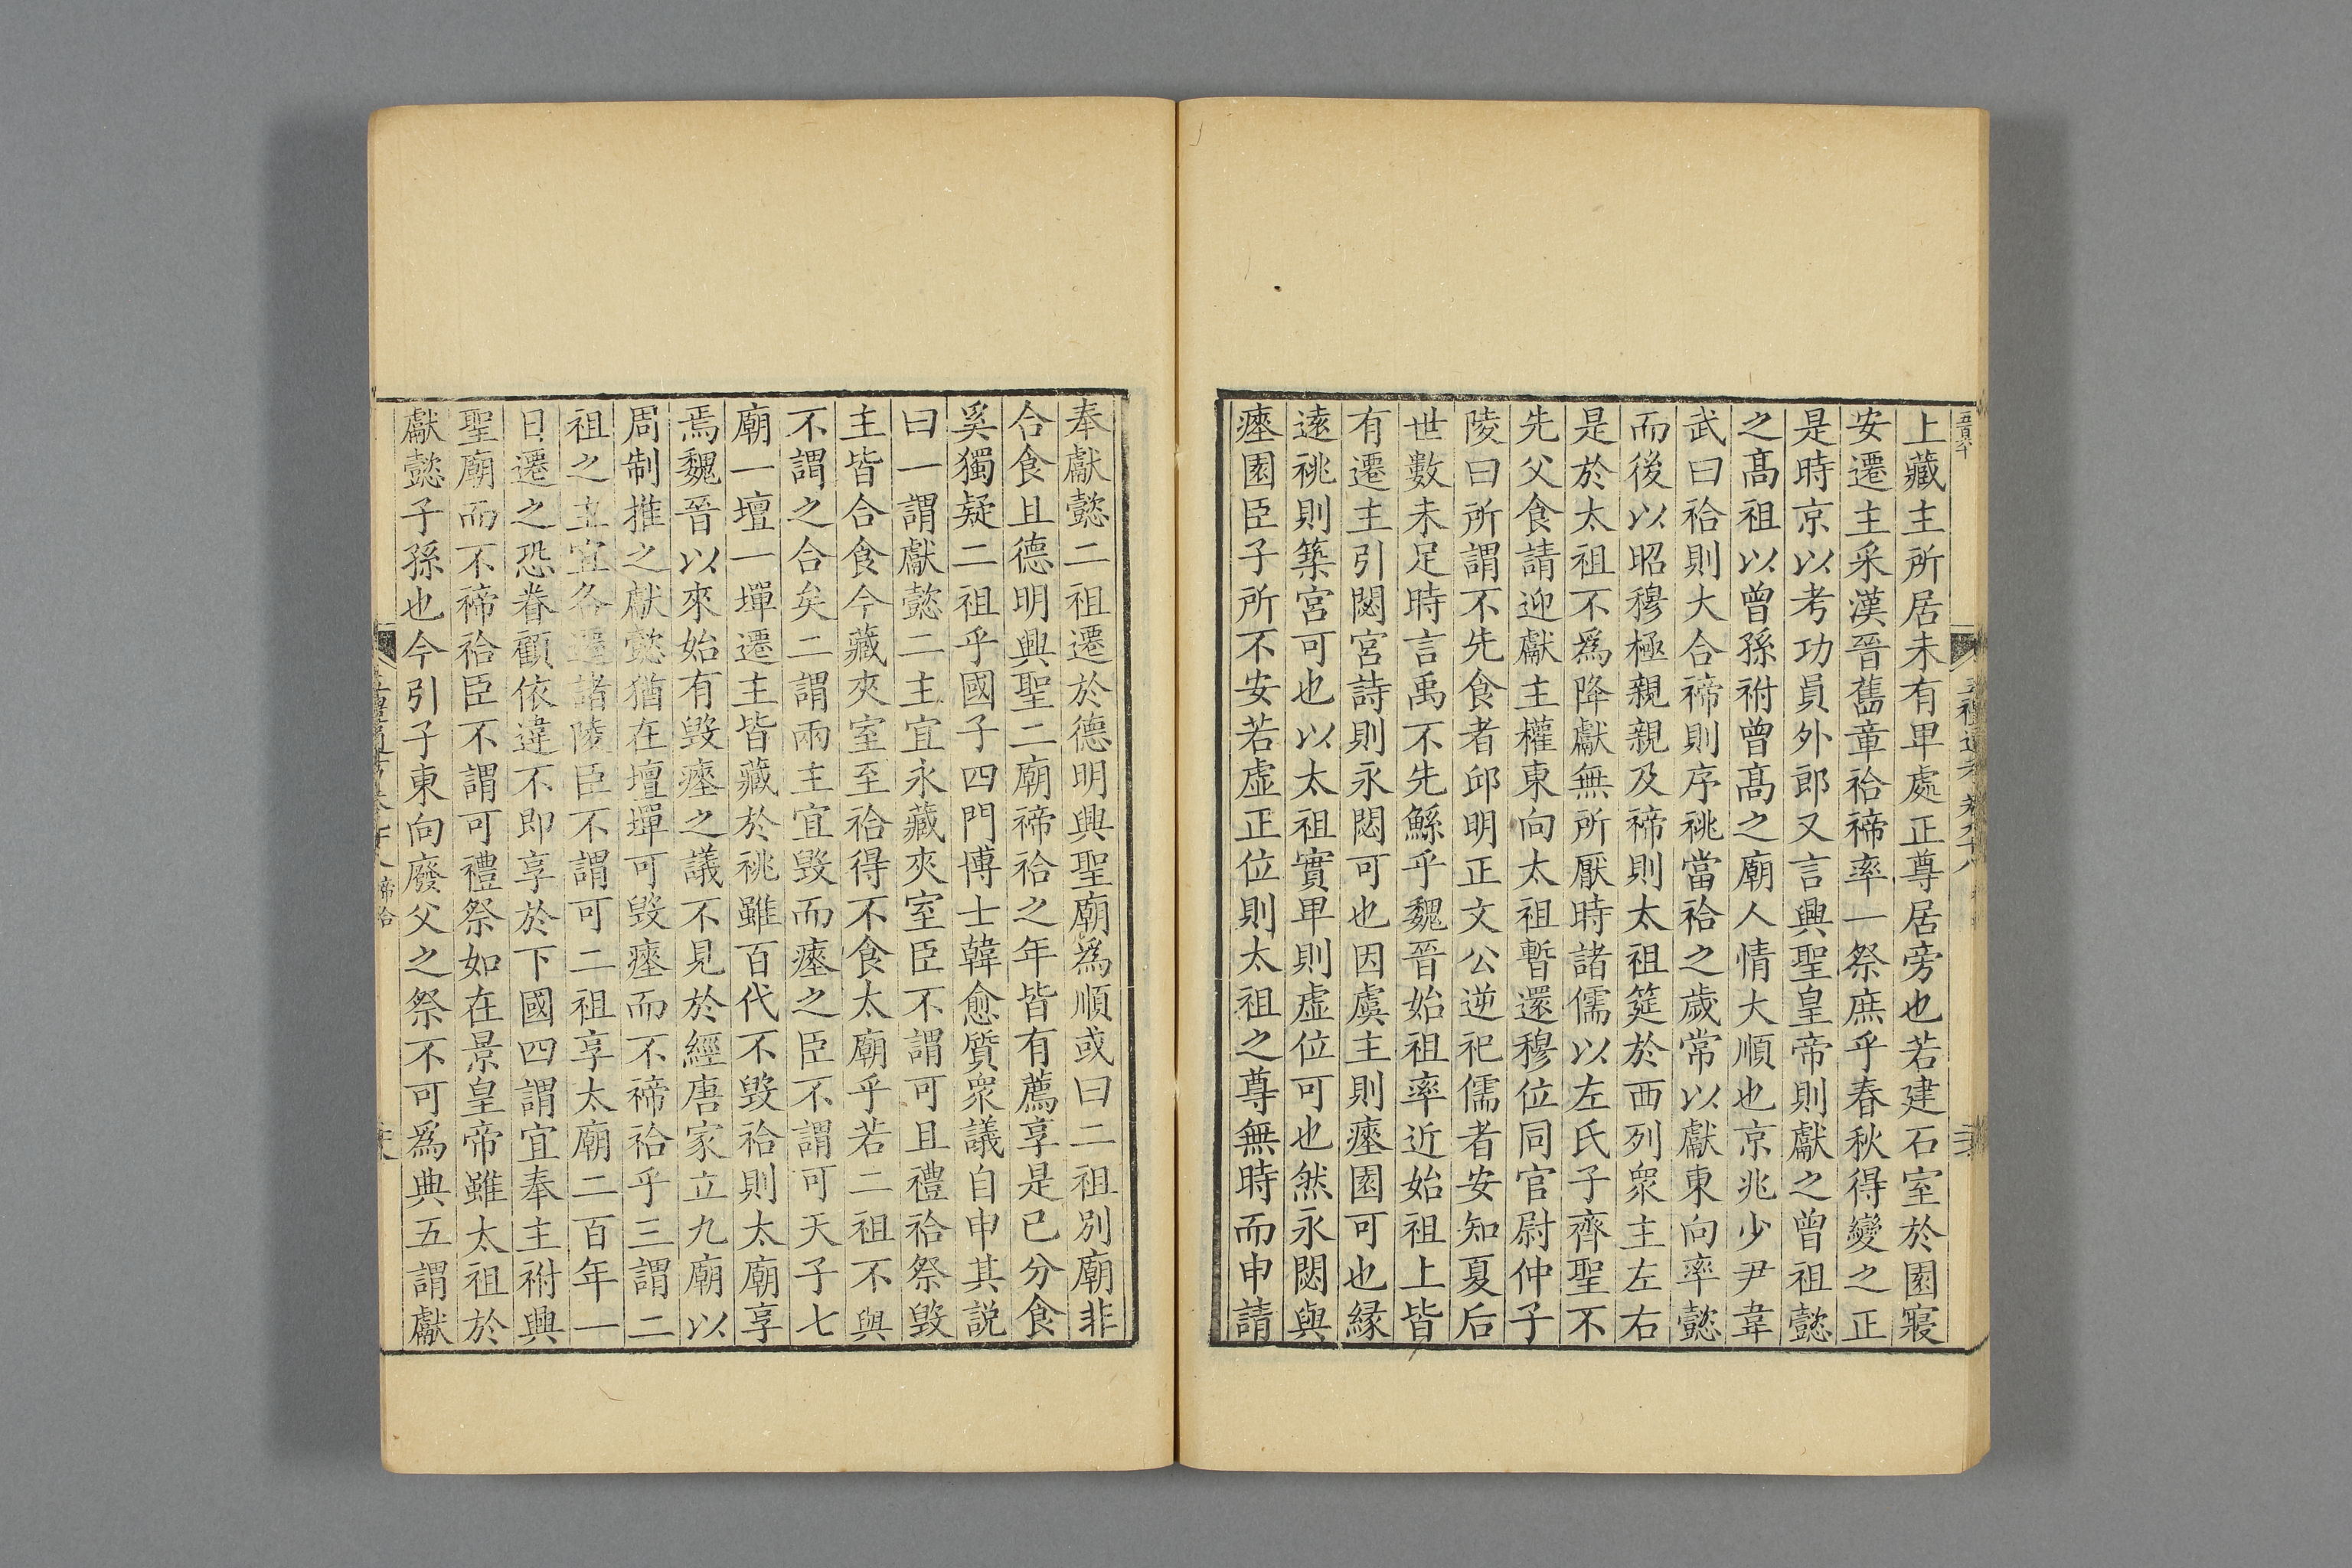 五百六十
上藏主所居未有卑處正尊居旁也若建石室於園寢
安遷主采漢晉舊章祫禘率一祭庶乎春秋得變之正
是時京以考功員外郎又言興聖皇帝則獻之曾祖懿
之高祖以曾孫祔曾高之廟人情大順也京兆少尹韋
武曰祫則大合禘則序祧當祫之歲常以獻東向率懿
而後以昭穆極親親及禘則太祖筵於西列衆主左右
是於太祖不爲降獻無所厭時諸儒以左氏子齊聖不
先父食請迎獻主權東向太祖暫還穆位同官尉仲子
陵曰所謂不先食者邱明正文公逆祀儒者安知夏后
世數未足時言禹不先鯀乎魏晉始祖率近始祖上皆
有遷主引閟宮詩則永閟可也因虞主則瘞園可也緣
遠祧則築宮可也以太祖實卑則虛位可也然永閟與
瘞園臣子所不安若虛正位則太祖之尊無時而申請
奉獻懿二祖遷於德明興聖廟爲順或曰二祖別廟非
合食且德明興聖二廟禘祫之年皆有薦享是已分食
奚獨疑二祖乎國子四門博士韓愈質衆議自申其説
曰一謂獻懿二主宜永藏夾室臣不謂可且禮祫祭毀
主皆合食今藏夾室至祫得不食太廟乎若二祖不與
不謂之合矣二謂兩主宜毀而瘞之臣不謂可天子七
廟一壇一墠遷主皆藏於祧雖百代不毀祫則太廟享
焉魏晉以來始有毀瘞之議不見於經唐家立九廟以
周制推之獻懿猶在壇墠可毀瘞而不禘祫乎三謂二
祖之主宜各遷諸陵臣不謂可二祖享太廟二百年一
日遷之恐眷顧依違不即享於下國四謂宜奉主祔興
聖廟而不禘祫臣不謂可禮祭如在景皇帝雖太祖於
獻懿子孫也今引子東向廢父之祭不可爲典五謂獻